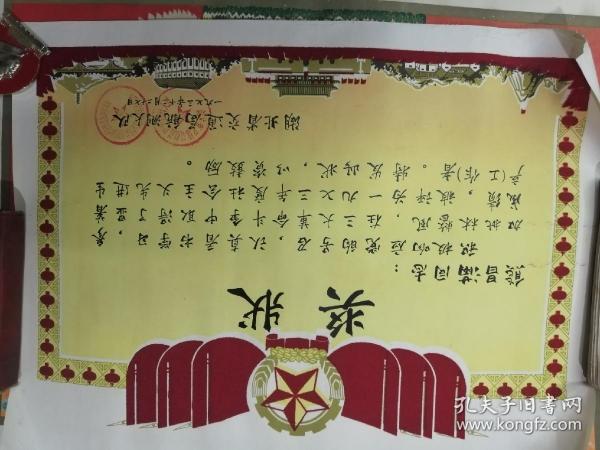 奖状
熊昌满同志：
积极响应党的号召，认真看书学习，参
加批林整风，在三大革命斗争中取得了显著
成绩，被评为一九七二年度社会主义先进生
产(工作)者。特发此状，以资鼓励。
湖北省交通局航测大队
一九七三年
孔夫子旧书网
www.kongfz.com